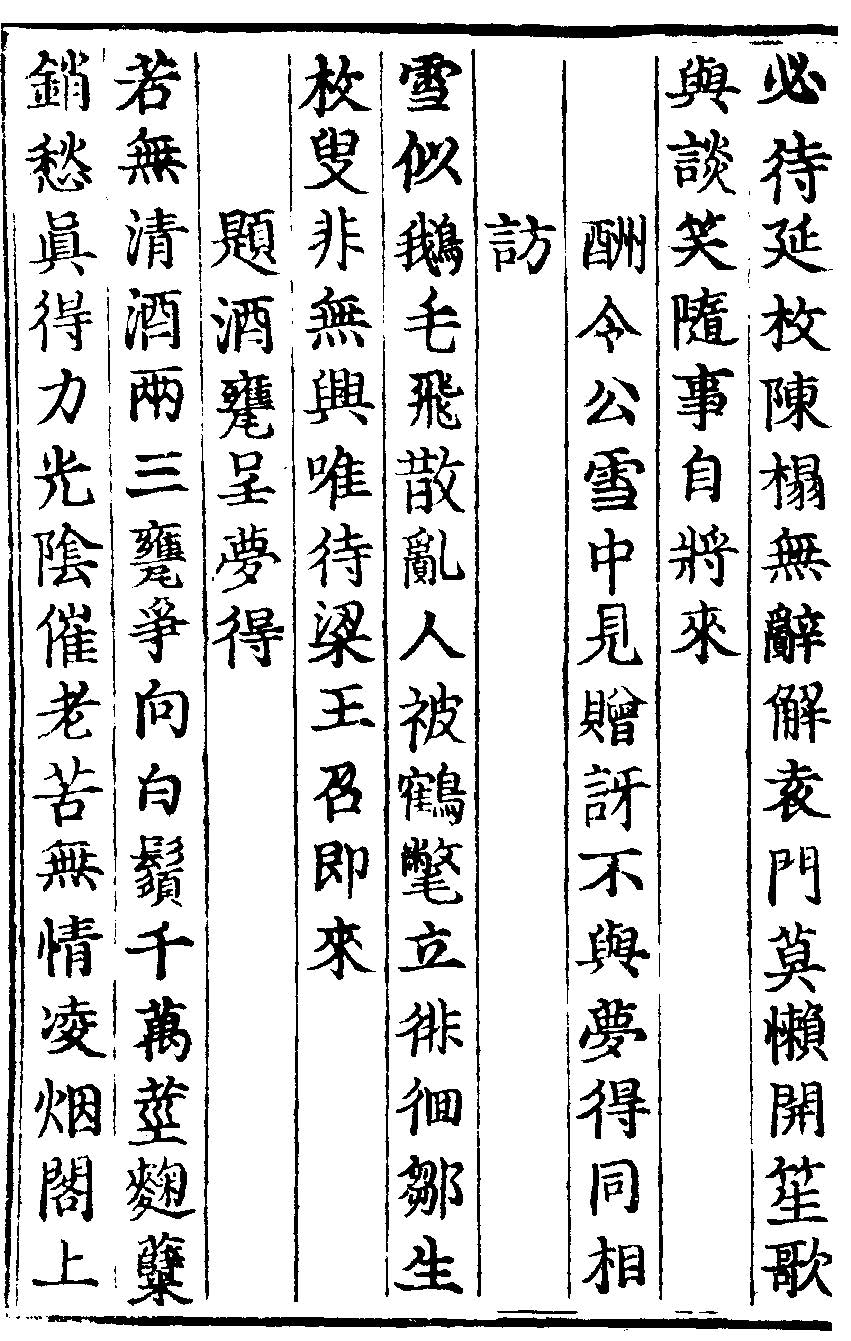 必待延枚陳榻無辭解袁門莫懶開笙歌
與談笑隨事自將來
酬令公雪中見贈訝不與夢得同相
訪
雪似鵝毛飛散亂人被鶴氅立徘徊鄒生
枚叟非無興唯待梁王召即來
題酒甕呈夢得
若無清酒兩三甕爭向白鬚千萬莖麴糵
銷愁眞得力光陰催老苦無情凌烟閣上